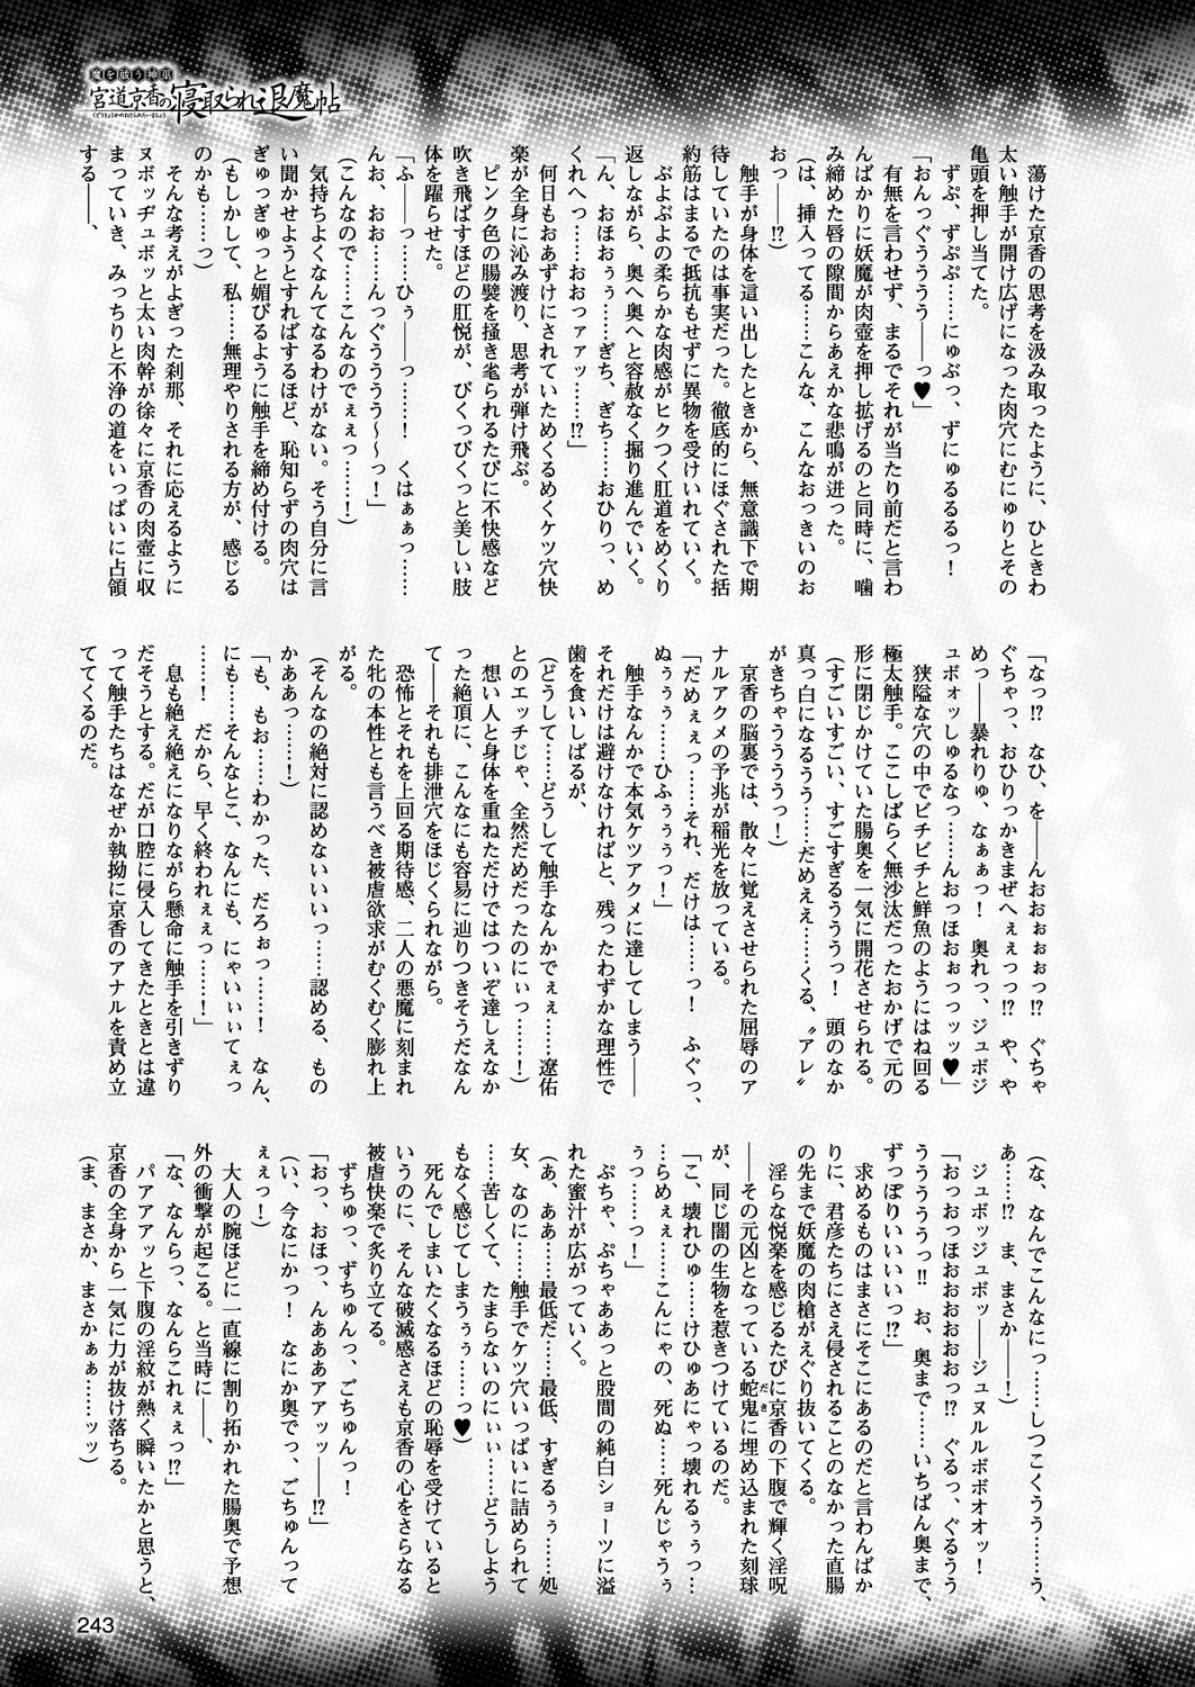 魔を祓う神凪
宮道京香の寝取られ退魔帖
蕩けた京香の思考を汲み取ったように、ひときわ
太い触手が開け広げになった肉穴にむにゅりとその
亀頭を押し当てた。
ずぷ、ずぷぷ……にゅぶっ、ずにゅるるるっ！
「おんっぐぅううう――っ♥」
有無を言わせず、まるでそれが当たり前だと言わ
んばかりに妖魔が肉壺を押し拡げるのと同時に、噛
み締めた唇の隙間からあえかな悲鳴が迸った。
（は、挿入ってる……こんな、こんなおっきいのお
おっ――!?）
触手が身体を這い出したときから、無意識下で期
待していたのは事実だった。徹底的にほぐされた括
約筋はまるで抵抗もせずに異物を受けいれていく。
ぷよぷよの柔らかな肉感がヒクつく肛道をめくり
返しながら、奥へ奥へと容赦なく掘り進んでいく。
「ん、おほおぅぅ……ぎち、ぎち……おひりっ、め
くれへっ……おおっァァッ……!?」
何日もおあずけにされていためくるめくケツ穴快
楽が全身に沁み渡り、思考が弾け飛ぶ。
ピンク色の腸襞を掻き毟られるたびに不快感など
吹き飛ばすほどの肛悦が、びくっびくっと美しい肢
体を躍らせた。
「ふ――っ……ひぅ――っ……！　くはぁぁっ……
んお、おお……んっぐううう～～っ！」
（こんなので……こんなのでぇぇっ……！）
気持ちよくなんてなるわけがない。そう自分に言
い聞かせようとすればするほど、恥知らずの肉穴は
ぎゅっぎゅっと媚びるように触手を締め付ける。
（もしかして、私……無理やりされる方が、感じる
のかも……っ）
そんな考えがよぎった刹那、それに応えるように
ヌボッヂュボッと太い肉幹が徐々に京香の肉壺に収
まっていき、みっちりと不浄の道をいっぱいに占領
する――、
「なっ!?　なひ、を――んおおぉぉぉっ!?　ぐちゃ
ぐちゃっ、おひりっかきまぜへぇぇっっ!?　や、や
めっ――暴れりゅ、なぁぁっ！　奥れっ、ジュボジ
ュボォッしゅるなっ……んおっほおぉっつッッ♥」
狭隘な穴の中でビチビチと鮮魚のようにはね回る
極太触手。ここしばらく無沙汰だったおかげで元の
形に閉じかけていた腸奥を一気に開花させられる。
（すごいすごい、すごすぎるうううっ！　頭のなか
真っ白になるうう……だめええ……くる、〝アレ〟
がきちゃうううっ！）
京香の脳裏では、散々に覚えさせられた屈辱のア
ナルアクメの予兆が稲光を放っている。
「だめぇぇっ……それ、だけは……っ！　ふぐっ、
ぬぅぅぅ……ひふぅぅぅっ！」
触手なんかで本気ケツアクメに達してしまう――
それだけは避けなければと、残ったわずかな理性で
歯を食いしばるが、
（どうして……どうして触手なんかでぇぇ……遼佑
とのエッチじゃ、全然だめだったのにぃっ……！）
想い人と身体を重ねただけではついぞ達しえなか
った絶頂に、こんなにも容易に辿りつきそうだなん
て――それも排泄穴をほじくられながら。
恐怖とそれを上回る期待感、二人の悪魔に刻まれ
た牝の本性とも言うべき被虐欲求がむくむく膨れ上
がる。
（そんなの絶対に認めないいいっ……認める、もの
かああっ……！）
「も、もお……わかった、だろぉっ……！　なん、
にも……そんなとこ、なんにも、にゃいぃぃてぇっ
……！　だから、早く終われぇぇっ……！」
息も絶え絶えになりながら懸命に触手を引きずり
だそうとする。だが口腔に侵入してきたときとは違
って触手たちはなぜか執拗に京香のアナルを責め立
ててくるのだ。
（な、なんでこんなにっ……しつこくうう……う、
あ……!?　ま、まさか――！）
ジュボッジュボッ――ジュヌルルボボオオッ！
「おっおっほおおおおおおっ!?　ぐるっ、ぐるうう
うううううっ!!　お、奥まで……いちばん奥まで、
ずっぽりいいいいっ!?」
求めるものはまさにそこにあるのだと言わんばか
りに、君彦たちにさえ侵されることのなかった直腸
の先まで妖魔の肉槍がえぐり抜いてくる。
淫らな悦楽を感じるたびに京香の下腹で輝く淫呪
――その元凶となっている蛇鬼に埋め込まれた刻球
が、同じ闇の生物を惹きつけているのだ。
「こ、壊れひゅ……けひゅあにゃっ壊れるぅぅっ…
…らめぇぇ……こんにゃの、死ぬ……死んじゃうぅ
ぅっ……っ！」
ぷちゃ、ぷちゃああっと股間の純白ショーツに溢
れた蜜汁が広がっていく。
（あ、ああ……最低だ……最低、すぎるぅぅ……処
女、なのに……触手でケツ穴いっぱいに詰められて
……苦しくて、たまらないのにぃぃ……どうしよう
もなく感じてしまうぅぅ……っ♥）
死んでしまいたくなるほどの恥辱を受けていると
いうのに、そんな破滅感さえも京香の心をさらなる
被虐快楽で炙り立てる。
ずちゅっ、ずちゅんっ、ごちゅんっ！
「おっ、おほっ、んあああアアッッ――!?」
（い、今なにかっ！　なにか奥でっ、ごちゅんって
ぇぇっ！）
大人の腕ほどに一直線に割り拓かれた腸奥で予想
外の衝撃が起こる。と当時に――、
「な、なんらっ、なんらこれぇぇっ!?」
パアアアッと下腹の淫紋が熱く瞬いたかと思うと、
京香の全身から一気に力が抜け落ちる。
（ま、まさか、まさかぁぁ……ッッ）
243